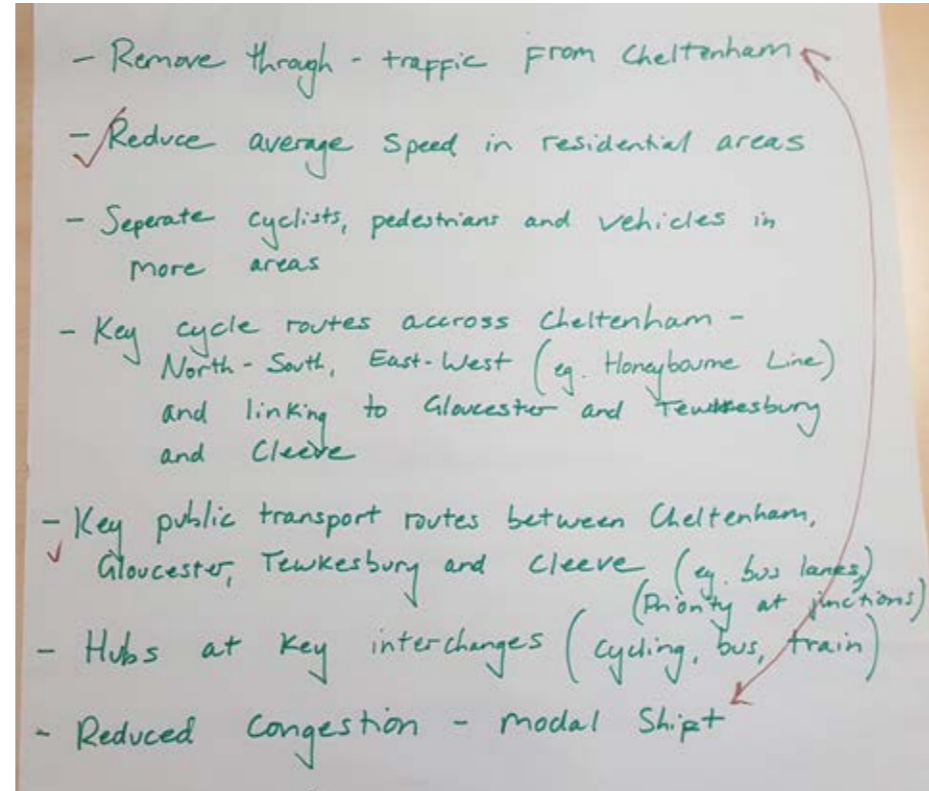 - Remove through - traffic from Cheltenham
- Reduce average speed in residential areas
- Seperate cyclists, pedestrians and vehicles in
more areas
- Key cycle routes accross Cheltenham -
North - South, East - West (eg. Honeybourne Line)
and linking to Gloucester and Tewkesbury
and Cleeve
- Key public transport routes between Cheltenham,
Gloucester, Tewkesbury and Cleeve (eg. bus lanes,)
(Priority at junctions)
- Hubs at key interchanges (cycling, bus, train)
- Reduced Congestion - modal Shift